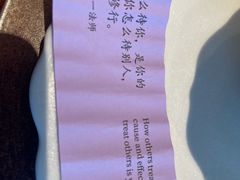 么待你，是你的
你怎么待别人，
修行。
一法师
How others trea
cause and effec
treat others is